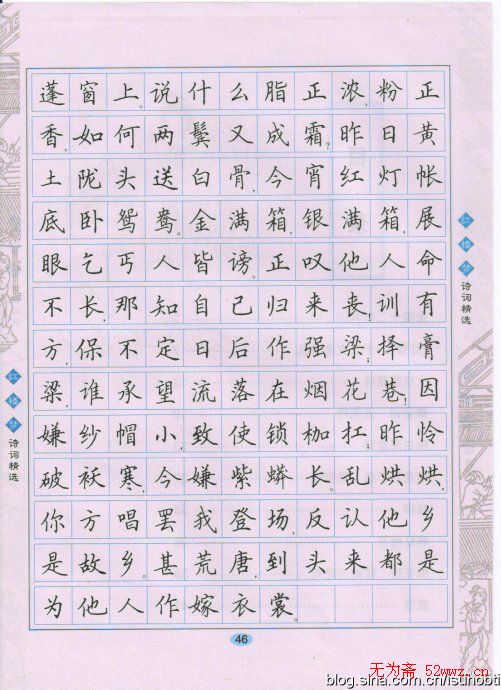 蓬窗上。说什么脂正浓、粉正
香，如何两鬓又成霜？昨日黄
土陇头送白骨，今宵红灯帐
底卧鸳鸯。金满箱，银满箱，展
眼乞丐人皆谤。正叹他人命
不长，那知自己归来丧！训有
方，保不定日后作强梁；择膏
粱，谁承望流落在烟花巷！因
嫌纱帽小，致使锁枷扛；昨怜
破袄寒，今嫌紫蟒长。乱烘烘，
你方唱罢我登场，反认他乡
是故乡。甚荒唐，到头来都是
为他人作嫁衣裳
46
红楼梦
诗词精选
红楼梦
诗词精选
无为斋 52wwz.cn
blog.sina.com.cn/sunobti